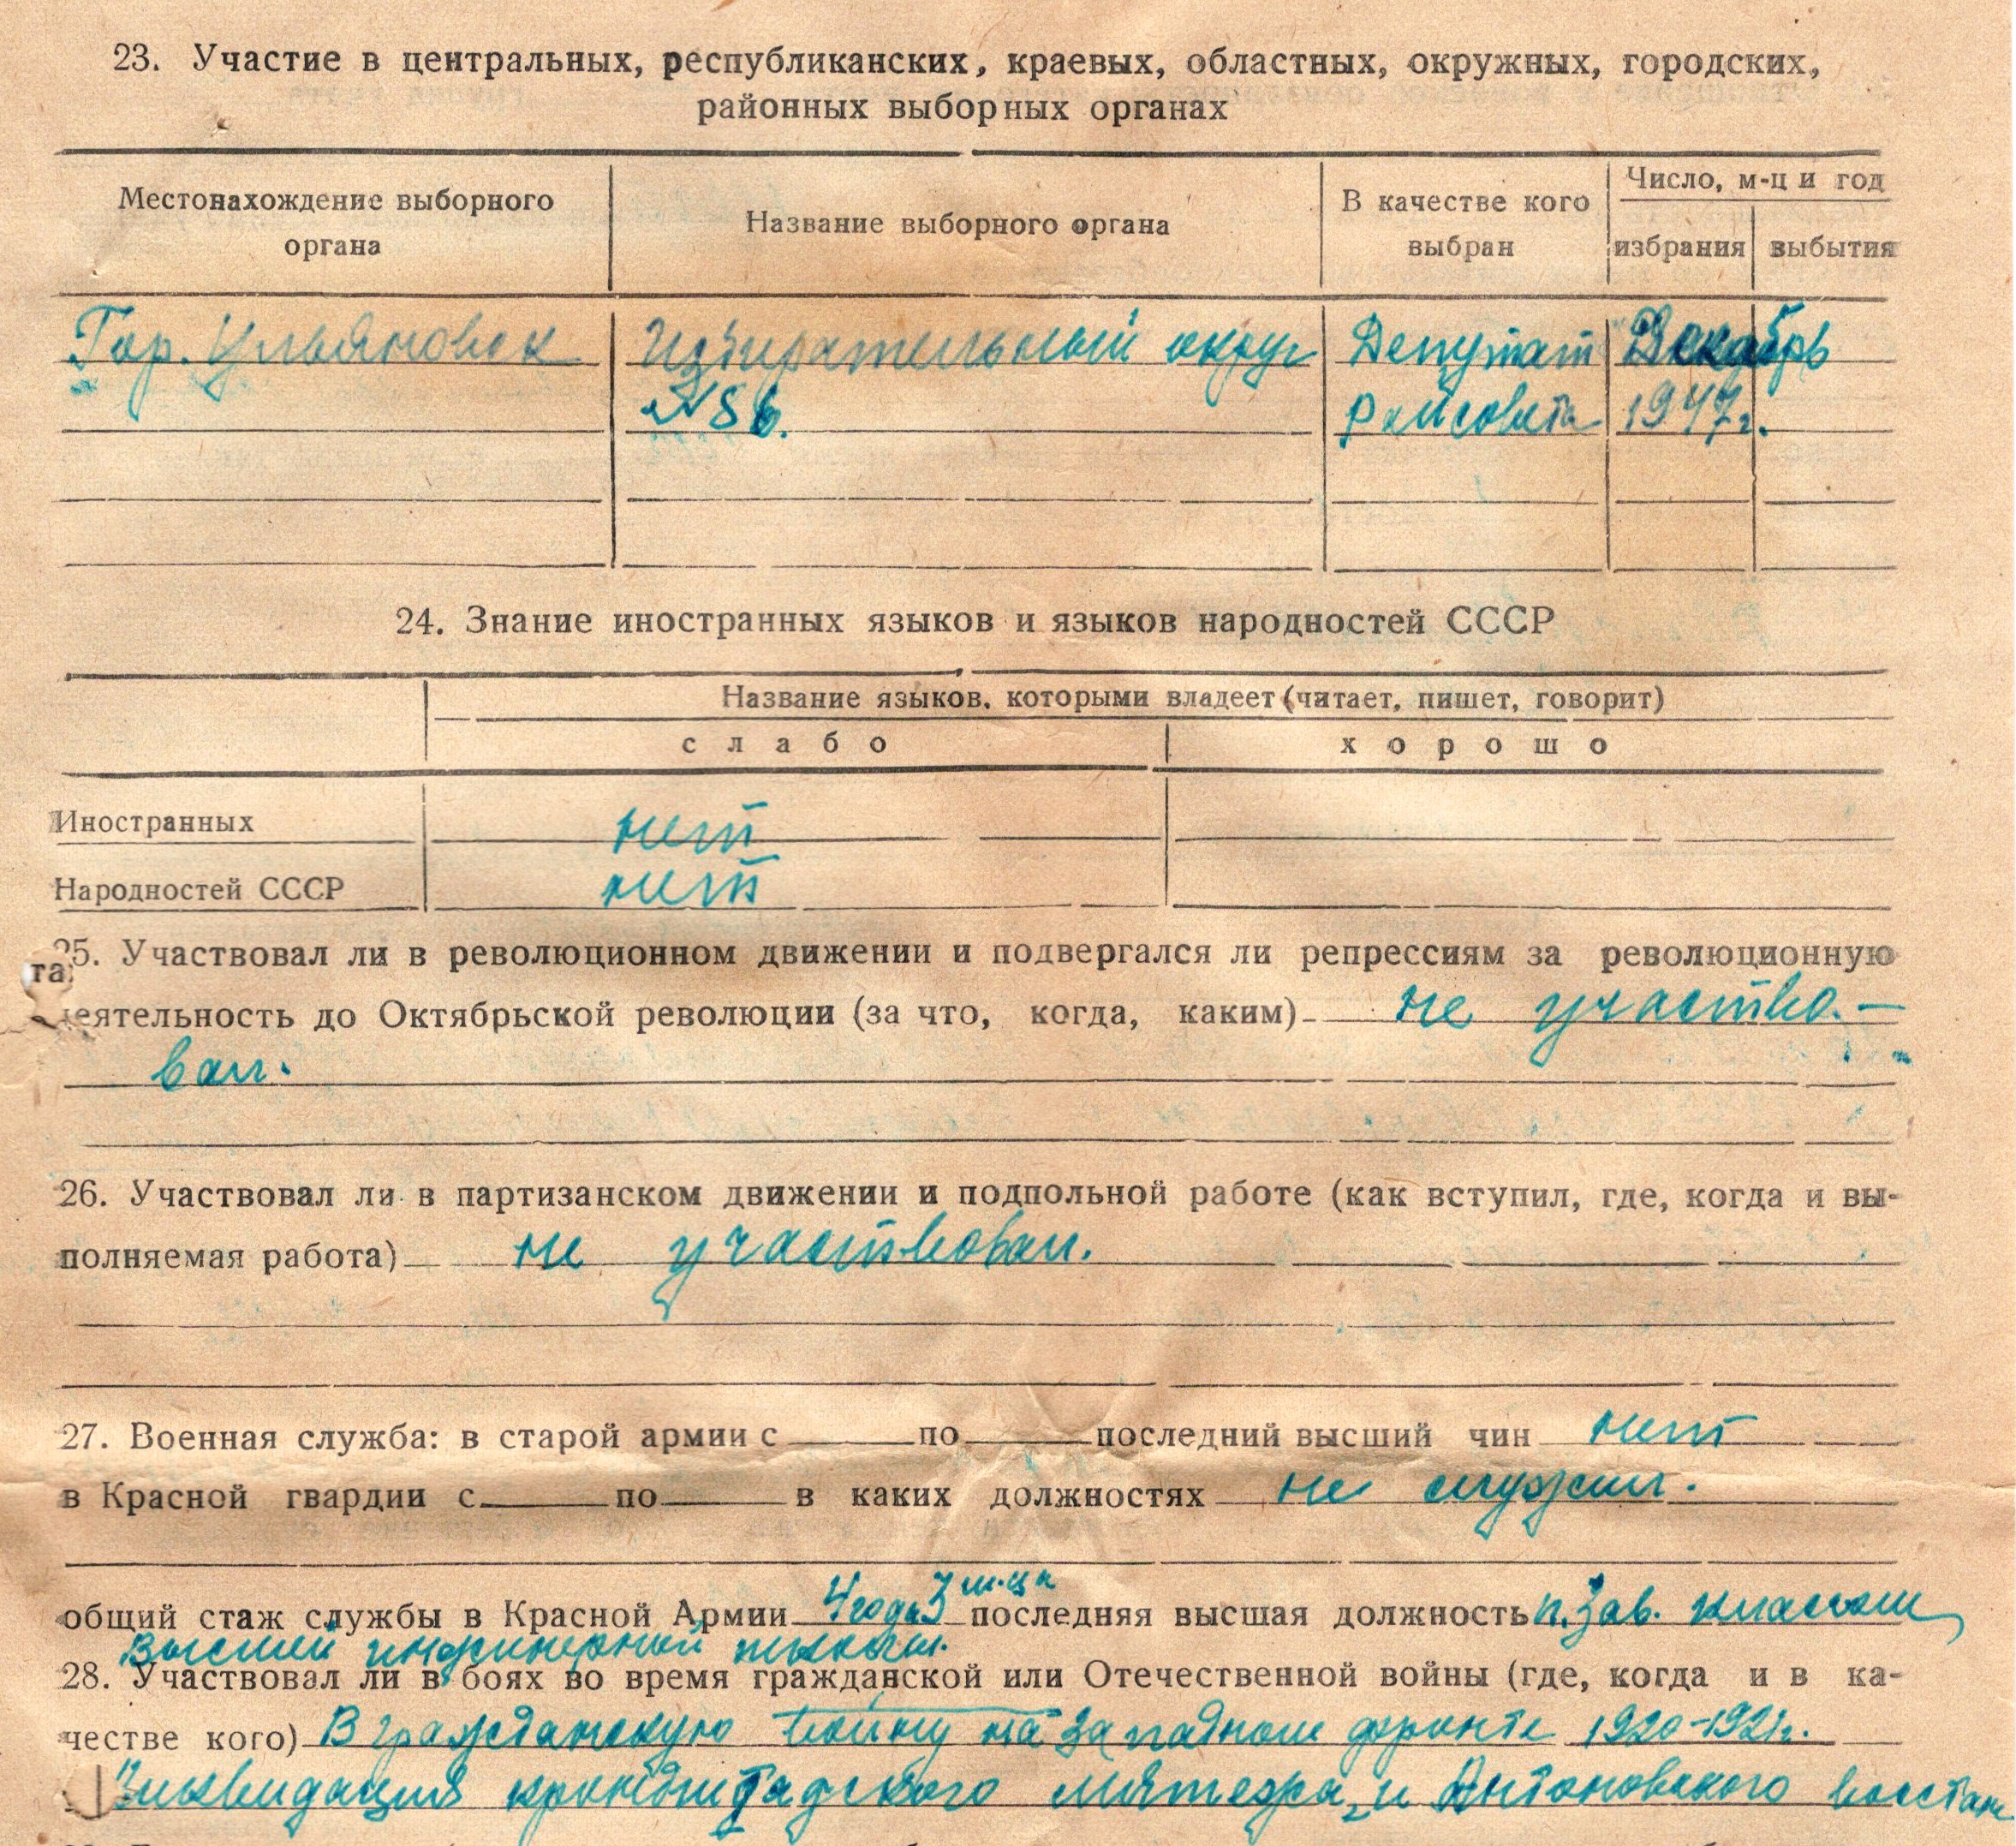 23. Участие в центральных, республиканских, краевых, областных, окружных, городских,
районных выборных органах
Местонахождение выборного органа
Название выборного органа
В качестве кого выбран
Число, м-ц и год
избрания
выбытия
Гор. Ульяновск
Избирательный округ
Депутат
Декабрь
№ 86.
райсовета
1947г.
24. Знание иностранных языков и языков народностей СССР
Название языков, которыми владеет (читает, пишет, говорит)
слабо
хорошо
Иностранных нет
Народностей СССР нет
25. Участвовал ли в революционном движении и подвергался ли репрессиям за революционную
та
деятельность до Октябрьской революции (за что, когда, каким) не участво-
вал.
26. Участвовал ли в партизанском движении и подпольной работе (как вступил, где, когда и вы-
полняемая работа) не участвовал.
27. Военная служба: в старой армии с по последний высший чин нет
в Красной гвардии с по в каких должностях не служил.
общий стаж службы в Красной Армии 4 года 3 м-ца последняя высшая должность п. зав. классом
высшей инженерной школы.
28. Участвовал ли в боях во время гражданской или Отечественной войны (где, когда и в ка-
честве кого) В гражданскую войну на западном фронте 1920-1921г.
Ликвидация кронштадского мятежа, и Антоновского восстан